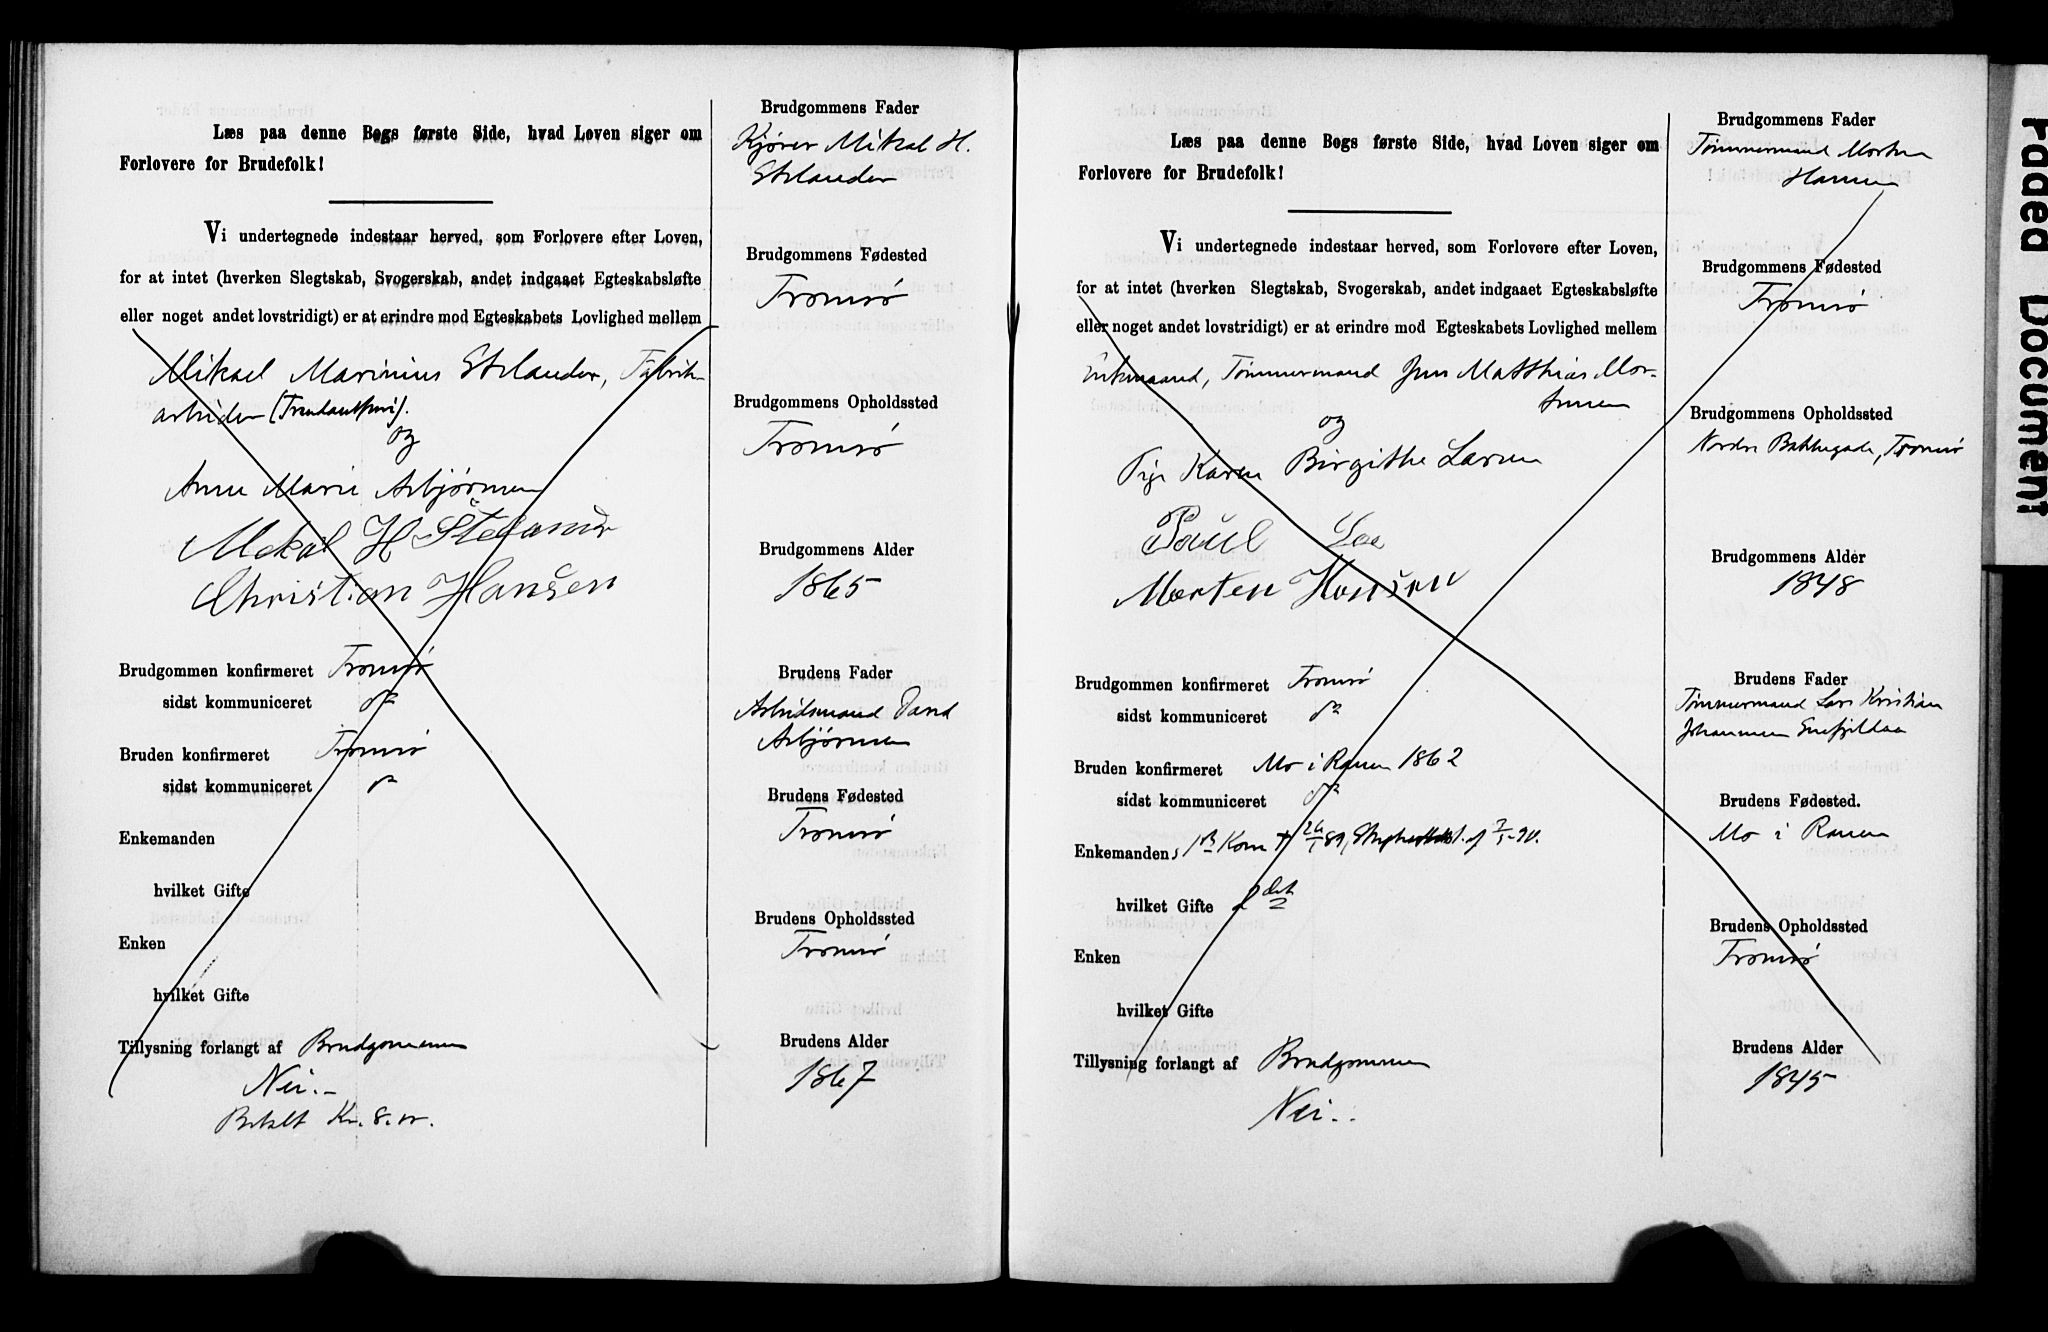 Læs paa denne Bogs første Side, hvad Loven siger om
Forlovere for Brudefolk!
Vi undertegnede indestaar herved, som Forlovere efter Loven,
for at intet (hverken Slegtskab, Svogerskab, andet indgaaet Egteskabsløfte
eller noget andet lovstridigt) er at erindre mod Egteskabets Lovlighed mellem
Mikael Marinius Stelander, Fabrik-
arbeider
og
Anne Marie Asbjørnsen
Mekal H Stelander
Christian Hansen
Brudgommen konfirmeret Tromsø
sidst kommuniceret do
Bruden konfirmeret Tromsø
sidst kommuniceret do
Enkemanden
hvilket Gifte
Enken
hvilket Gifte
Tillysning forlangt af Brudgommen
Nei.-
Betalt Kr. 8.00.
Brudgommens Fader
Kjører Mikal H.
Stelander
Brudgommens Fødested
Tromsø
Brudgommens Opholdssted
Tromsø
Brudgommens Alder
1865
Brudens Fader
Arbeidsmand David
Asbjørnsen
Brudens Fødested
Tromsø
Brudens Opholdssted
Tromsø
Brudens Alder
1867
Læs paa denne Bogs første Side, hvad Loven siger om
Forlovere for Brudefolk!
Vi undertegnede indestaar herved, som Forlovere efter Loven,
for at intet (hverken Slegtskab, Svogerskab, andet indgaaet Egteskabsløfte
eller noget andet lovstridigt) er at erindre mod Egteskabets Lovlighed mellem
Enkemand, Tømmermand Jens Matthias Mor-
tensen
og
Pige Karen Birgithe Larsen
Paul Lae
Morten Hansen
Brudgommen konfirmeret Tromsø
sidst kommuniceret do
Bruden konfirmeret Mo i Ranen 1862
sidst kommuniceret do
Enkemandens 1ste Kone † 26/1 89, af 7/5-90.
hvilket Gifte 2det
Enken
hvilket Gifte
Tillysning forlangt af Brudgommen
Nei.-
Brudgommens Fader
Tømmermand Morten
Hansen
Brudgommens Fødested
Tromsø
Brudgommens Opholdssted
Nordre Bakkegade, Tromsø
Brudgommens Alder
1848
Brudens Fader
Tømmermand Lars Kristian
Johannesen
Brudens Fødested.
Mo i Ranen
Brudens Opholdssted
Tromsø
Brudens Alder
1845
Faded Document